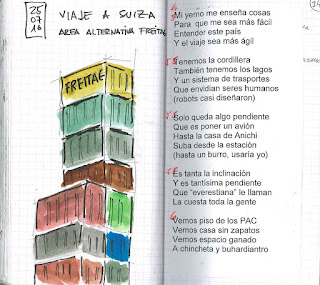 25
07
16
VIAJE A SUIZA
AREA ALTERNATIVA FREITAG
FREITAG
Mi yerno me enseña cosas
Para que me sea más fácil
Entender este país
Y el viaje sea más ágil
Tenemos la cordillera
También tenemos los lagos
Y un sistema de trasportes
Que envidian seres humanos
(robots casi diseñaron)
Solo queda algo pendiente
Que es poner un avión
Hasta la casa de Anichi
Suba desde la estación
(hasta un burro, usaría yo)
Es tanta la inclinación
Y es tantísima pendiente
Que "everestiana" le llaman
La cuesta toda la gente
Vemos piso de los PAC
Vemos casa sin zapatos
Vemos espacio ganado
A chincheta y buhardiantro